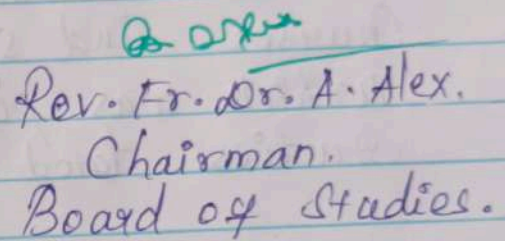 Rev. Fr. Dr. A. Alex.
Chairman.
Board of Studies.